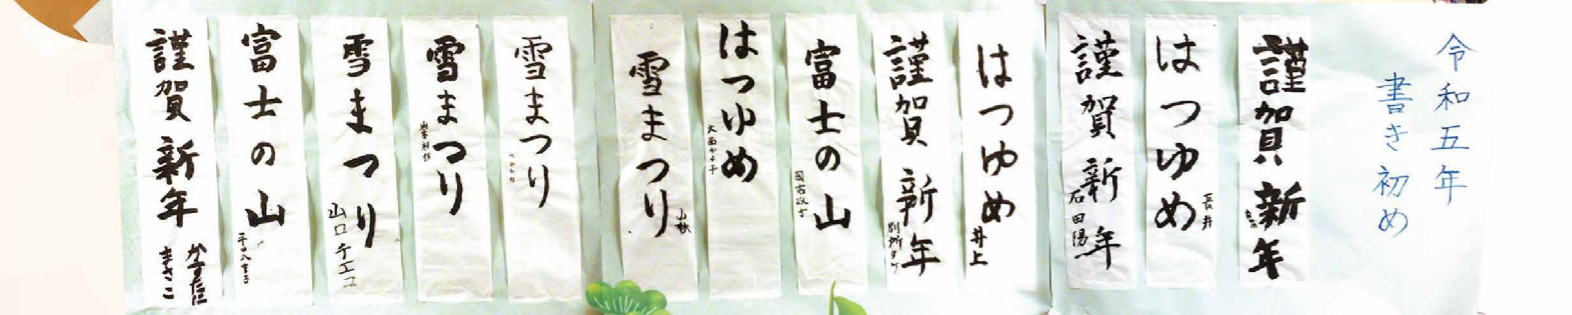 令和五年
書き初め
謹賀新年
はつゆめ
長井
謹賀新年
石田陽
はつゆめ
井上
謹賀新年
富士の山
はつゆめ
雪まつり
雪まつり
雪まつり
雪まつり
山口チエコ
富士の山
謹賀新年
かすたに
まさこ